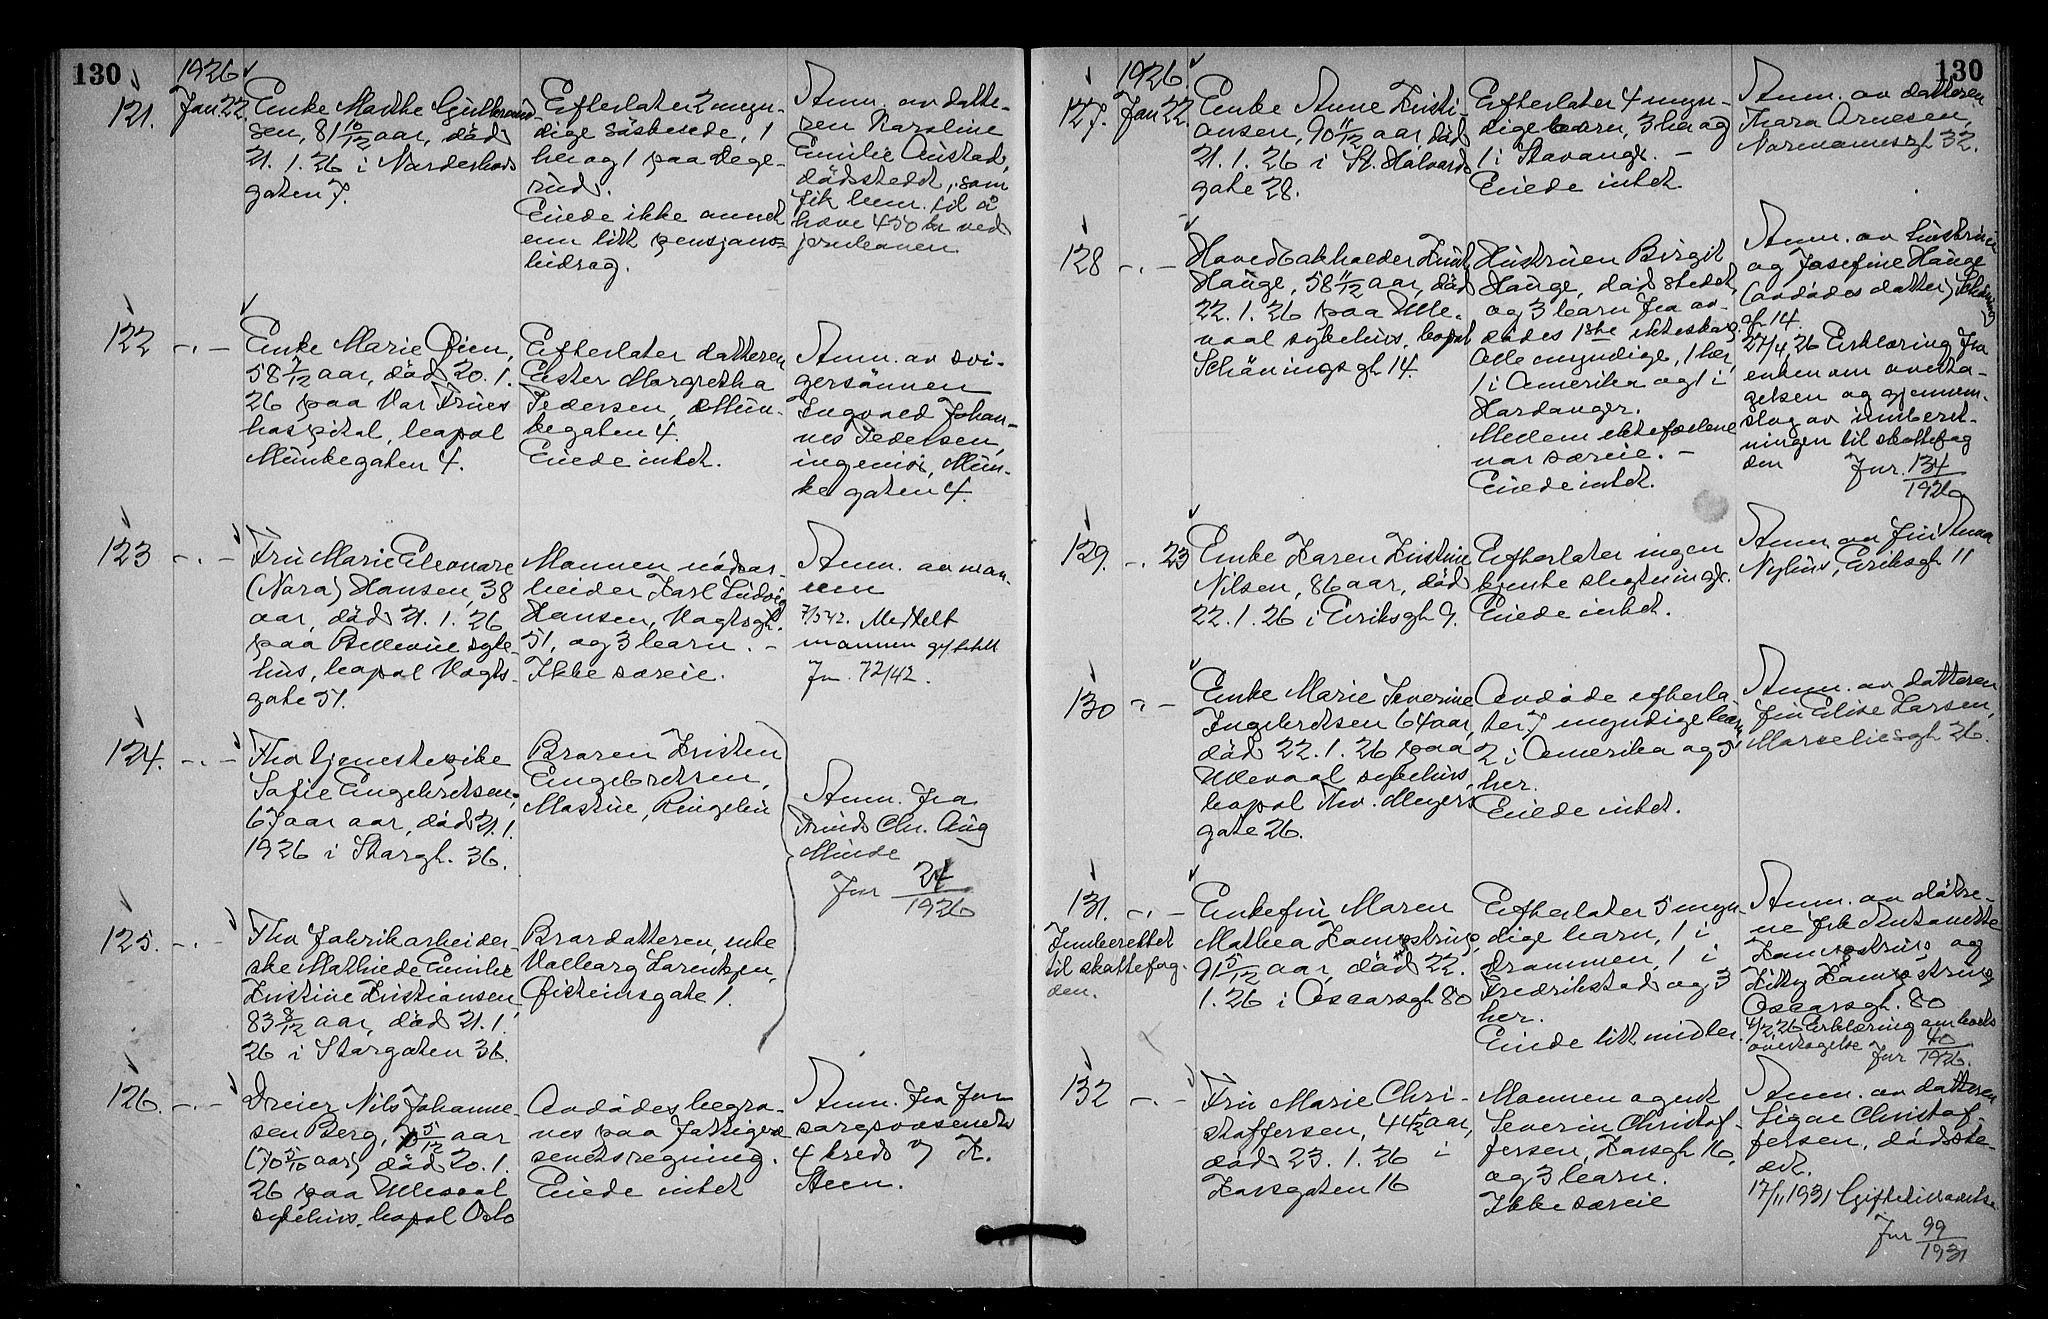 130
1926
121.
Jan 22.
Enke Marthe Gulbrand-
sen, 81 10/12 aar, död
21. 1. 26 i Nordenhovs
gaten 7.
Efterlater 2 myn-
dige söskende, 1
her og 1 paa Hege-
rud.
Eiede ikke annet
enn litt pensjons=
bidrag.
Anm. av datte-
ren Karoline
Emilie Austad,
dödstedet, som
fik bem. til å
heve 450 kr ved
jernbanen
122
-.-
Enke Marie Öien,
58 7/12 aar, död 20. 1.
26 paa Vor Frues
hospital, bopel
Munkegaten 4.
Efterlater datteren
Ester Margretha
Pedersen, Mun-
kegaten 4.
Eiede intet.
Anm. av svi-
gersönnen
Ingvald Johan-
nes Pedersen,
ingeniör, Mun-
ke gaten 4.
123
-.-
Fru Marie Eleonore
(Nora) Hansen, 38
aar, död 21. 1. 26
paa Bellevue syke-
hus, bopel Vogts-
gate 51.
Mannen
beider Karl Ludvig
Hansen, Vogtsgt.
51, og 3 barn. -
Ikke særeie.
Anm. av man-
nen
7/5 42. Meddelt
mannen
Jn. 72/42.
124.
-.-
Fhv tjenestepike
Sofie Engebretsen,
67 aar aar, död 21. 1.
1926 i Storgt. 36.
Broren Kristen
Engebretsen,
Moskue, Ringebu
Anm. fra
Chr. Aug
Minde
Jnr 24/1926
125.
-.-
Fhv fabrikarbeider-
ske Mathilde Emilie
Kristine Kristiansen
83 8/12 aar, död 21. 1.
26 i Storgaten 36.
Brordatteren, enke
Valborg Lorentzen,
Öisteinsgate 1.
126.
-.-
Dreier Nils Johanne-
sen Berg, 5/12 aar
(70 5/10 aar) död 20. 1.
26 paa Ullevaal
sykehus, bopel Oslo
Avdödes begra-
ves paa Fattigvæ
senets regning.
Eiede intet
Anm. fra For
sorgsvæsenets
4 kreds v/ K.
Steen.
130
1926.
127.
Jan 22.
Enke Anne Kristi-
ansen, 90 11/12 aar, död
21. 1. 26 i St. Halvards
gate 28.
Efterlater 4 myn-
dige barn, 3 her og
1 i Stavanger. -
Eiede intet.
Anm. av datteren
Thora Arnesen,
Normannsgt 32.
128
-.-
Hovedbokholder Knut
Hauge, 58 11/12 aar, död
22. 1. 26 paa Ulle-
vaal sykehus, bopel
Schönings gt 14.
Hustruen Birgit
Hauge, död stedet,
og 3 barn fra av-
dödes 1ste ekteskap.
Alle myndige, 1 her,
1 i Amerika og 1 i
Hardanger.
Mellem ektefællene
var særeie. -
Eiede intet.
Anm. av hustruen
og Josefine Hauge
(avdödes datter) Schönings
gt 14.
27/4 26 Erklæring fra
enken om overta-
gelsen og gjennem-
slag av innberet-
ningen til skattefog
den Jnr. 134/1926
129.
-. 23
Enke Karen Kristine
Nilsen, 86 aar, död
22. 1. 26 i Eiriksgt 9.
Efterlater ingen
kjente slegtninger.
Eiede intet.
Anm. av fru Anna
Nyhus, Eiriksgt 11
130
-.-
Enke Marie Severine
Ingebretsen 64 aar,
död 22. 1. 26 paa
Ullevaal sykehus,
bopel Thv. Meyers
gate 26.
Avdöde efterla-
ter 7 myndige barn,
2 i Amerika og 5
her.
Eiede intet.
Anm. av datteren
fru Elise Larsen,
Marseliesgt 26.
131.
-.-
Innberettet
til skattefog-
den.
Enkefru Maren
Mathea Kamstrup,
91 5/12 aar, död 22.
1. 26 i Oscarsgt 80
Efterlater 5 myn-
dige barn, 1 i
Drammen, 1 i
Fredrikstad og 3
her.
Eiede litt midler.
Anm. av dötre-
ne frk Antonette
Kamstrup og
Kitty Kamstrup
Oscarsgt. 80
4/2 26 Erklæring om bo
overtagelse Jnr 40/1926.
132
-.-
Fru Marie Chri-
stoffersen, 44 1/2 aar,
död 23. 1. 26 i
Korsgaten 16
Mannen agent
Severin Christof-
fersen, Korsgt 16,
og 3 barn.
Ikke særeie
Anm. av datteren
Signe Christof
fersen, dödste-
det.
17/11 1931
Jnr 99/1931